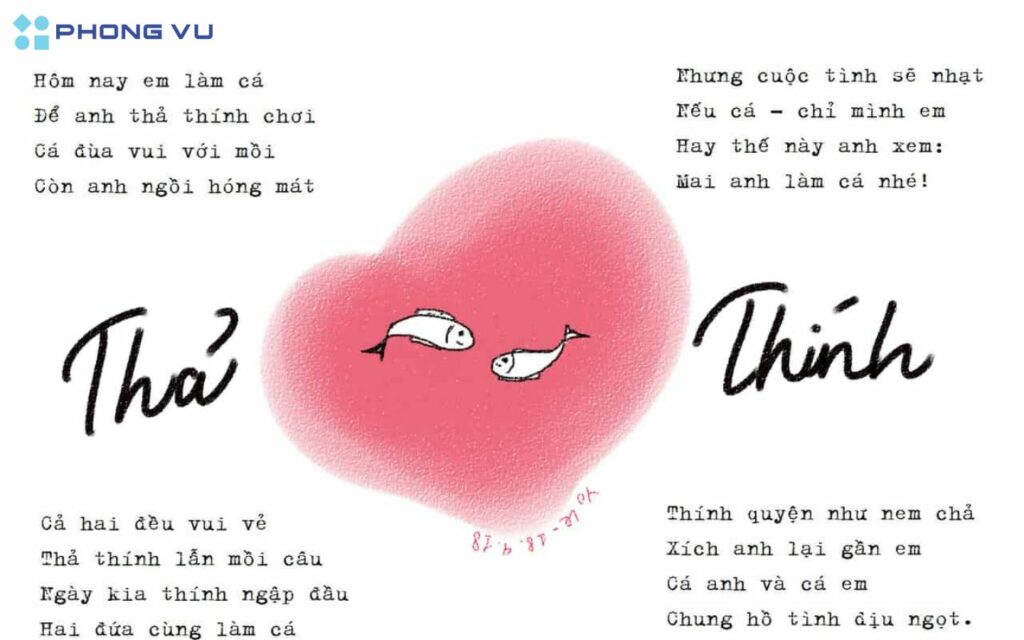 PHONG VU
Hôm nay em làm cá
Để anh thả thính chơi
Cá đùa vui với mồi
Còn anh ngồi hóng mát
Nhưng cuộc tình sẽ nhạt
Nếu cá - chỉ mình em
Hay thế này anh xem:
Mai anh làm cá nhé!
Thả Thính
Cả hai đều vui vẻ
Thả thính lẫn mồi câu
Ngày kia thính ngập đầu
Hai đứa cùng làm cá
Thính quyện như nem chả
Xích anh lại gần em
Cá anh và cá em
Chung hồ tình dịu ngọt.
18.9.18